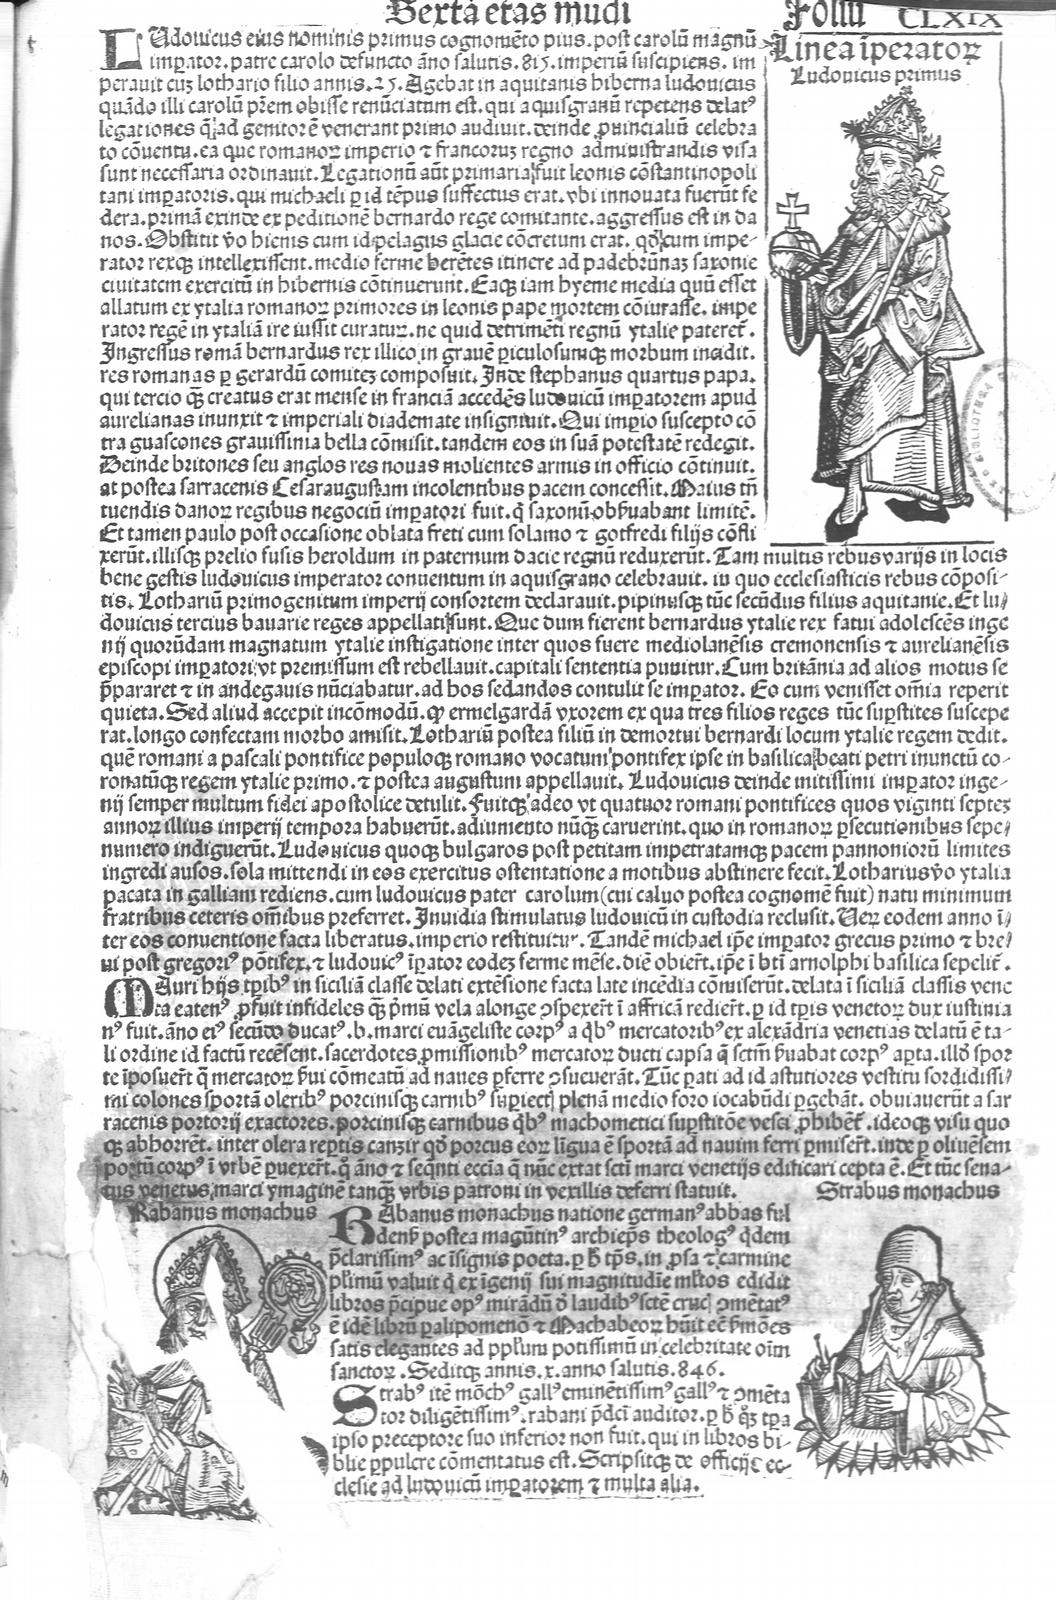 Sexta etas mũdi
Foliũ CLXIX
Linea ĩperatoꝝ
Ludouicus primus
LUdouicus eius nominis primus cognomẽto pius. post carolũ magnũ
imꝑator. patre carolo defuncto ãno salutis. 815. imperiũ suscipiens. im
perauit cuꝫ lothario filio annis. 25. Agebat in aquitanis hiberna ludouicus
quãdo illi carolũ p̃rem obisse renũciatum est. qui aquisgranũ repetens delatꝰ
legationes q̃ ad genitorẽ venerant primo audiuit. deinde ꝓuincialiũ celebra
to cõuentu. ea que romanoꝝ imperio ⁊ francoruꝫ regno administrandis visa
sunt necessaria ordinauit. Legationũ aũt primaria fuit leonis cõstantinopoli
tani imꝑatoris. qui michaeli ꝑ id tẽpus suffectus erat. vbi innouata fuerũt fe
dera. primã exinde expeditionẽ bernardo rege comitante. aggressus est in da
nos. Obstitit ṽo hiemis cum id pelagus glacie cõcretum erat. qđ cum impe-
rator rexqꝫ intellexissent. medio ferme herẽtes itinere ad padebrũnaꝫ saxonie
ciuitatem exercitũ in hibernis cõtinuerunt. Eaqꝫ iam hyeme media quũ esset
allatum ex ytalia romanoꝝ primores in leonis pape mortem cõiurasse. impe
rator regẽ in ytaliã ire iussit curatuꝝ. ne quid detrimẽti regnũ ytalie pateret᷑.
Ingressus romã bernardus rex illico in grauẽ ꝑiculosumqꝫ morbum incidit.
res romanas ꝑ gerardũ comiteꝫ composuit. Inde stephanus quartus papa.
qui tercio qꝫ̃ creatus erat mense in franciã accedẽs ludouicũ imꝑatorem apud
aurelianas inunxit ⁊ imperiali diademate insigniuit. Qui imꝑio suscepto cõ
tra guascones grauissima bella cõmisit. tandem eos in suã potestatẽ redegit.
Deinde britones seu anglos res nouas molientes armis in officio cõtinuit.
at postea sarracenis Cesaraugustam incolentibus pacem concessit. Maius tñ
tuendis danoꝝ regibus negociũ imꝑatori fuit. q̃ saxonũ obßuabant limitẽ.
Et tamen paulo post occasione oblata freti cum solamo ⁊ gotfredi filijs cõfli
xerũt. illisqꝫ prelio fusis heroldum in paternum dacie regnũ reduxerũt. Tam multis rebus varijs in locis
bene gestis ludouicus imperator conuentum in aquisgrano celebrauit. in quo ecclesiasticis rebus cõposi-
tis. Lothariũ primogenitum imperij consortem declarauit. pipinusqꝫ tũc secũdus filius aquitanie. Et lu⸗
douicus tercius bauarie reges appellati sunt. Que dum fierent bernardus ytalie rex fatui adolescẽs inge
nij quorũdam magnatum ytalie instigatione inter quos fuere mediolanẽsis cremonensis ⁊ aurelianẽsis
episcopi imꝑatori vt premissum est rebellauit. capitali sententia punitur. Cum britãnia ad alios motus se
p̃pararet ⁊ in andegauis nũciabatur. ad hos sedandos contulit se imꝑator. Eo cum venisset om̃ia reperit
quieta. Sed aliud accepit incõmodũ. ꝙ ermelgardã vxorem ex qua tres filios reges tũc suꝑstites suscepe
rat. longo confectam morbo amisit. Lothariũ postea filiũ in demortui bernardi locum ytalie regem dedit.
quẽ romani a pascali pontifice populoqꝫ romano vocatum pontifex ipse in basilica beati petri inunctũ co-
ronatũqꝫ regem ytalie primo. ⁊ postea augustum appellauit. Ludouicus deinde mitissimi imꝑator inge-
nij semper multum fidei apostolice detulit. Fuitqꝫ adeo vt quatuor romani pontifices quos viginti septeꝫ
annoꝝ illius imperij tempora habuerũt. adiumento nũqꝫ̃ caruerint. quo in romanoꝝ ꝑsecutionibus sepe⸗
numero indiguerũt. Ludouicus quoqꝫ bulgaros post petitam impetratamqꝫ pacem pannoniorũ limites
ingredi ausos. sola mittendi in eos exercitus ostentatione a motibus abstinere fecit. Lotharius ṽo ytalia
pacata in galliam rediens. cum ludouicus pater carolum (cui caluo postea cognomẽ fuit) natu minimum
fratribus ceteris om̃ibus preferret. Inuidia stimulatus ludouicũ in custodia reclusit. Ueꝝ eodem anno ĩ⸗
ter eos conuentione facta liberatus. imperio restituitur. Tandẽ michael ip̃e imꝑator grecus primo ⁊ bre⸗
ui post gregoriꝰ põtifex. ⁊ ludouicꝰ ĩꝑator eodeꝫ ferme mẽse. diẽ obierũt. ip̃e ĩ bt̃i arnolphi basilica sepelit᷑.
MAuri hijs tꝑibꝰ in siciliã classe delati extẽsione facta late incẽdia cõmiserũt. delata ĩ siciliã classis vene
ta eatenꝰ ꝓfuit infideles qꝫ p̃mũ vela alonge ꝯspexerũt ĩ affricã redierũt. ꝑ id tꝑis venetoꝝ dux iustinia
nꝰ fuit. ãno eiꝰ secũdo ducatꝰ. b. marci euãgeliste corpꝰ a qͥbꝰ mercatoribꝰ ex alexãdria venetias delatũ ẽ ta-
li ordine id factũ recẽsent. sacerdotes ꝓmissionibꝰ mercatoꝝ ducti capsa q̃ sctm̃ ßuabat corpꝰ apta. illđ spor
te ĩposuerũt q̃ mercatoꝝ ßui cõmeatũ ad naues ꝑferre ꝯsueuerãt. Tũc ꝑati ad id astutiores vestitu sordidissi⸗
mi colones sportã oleribꝰ porcinisqꝫ carnibꝰ suꝑiectꝭ plenã medio foro iocabũdi ꝑgebãt. obuiauerũt a sar
racenis portorij exactores. porcinisqꝫ carnibus qͥbꝰ machometici suꝑstitõne vesci ꝓhibẽt᷑. ideoqꝫ visu quo
qꝫ abhorrẽt. inter olera reꝑtis canzir qđ porcus eoꝝ lĩgua ẽ sportã ad nauim ferri ꝑmiserũt. inde ꝑ oliuẽsem
portũ corpꝰ ĩ vrbẽ ꝑuexerũt. qͦ ãno ⁊ seqñti ecc̃ia q̃ nũc extat scti marci venetijs edificari cepta ẽ. Et tũc sena-
tus venetus marci ymaginẽ tanqꝫ̃ vrbis patroni in vexillis deferri statuit.
Strabus monachus
Rabanus monachus
RAbanus monachus natione germanꝰ abbas ful
deñ. postea magũtinꝰ archiep̃s theologꝰ qͥdem
p̃clarissimꝰ ac ĩsignis poeta. ꝑ h̃ tꝑs. in ꝓsa ⁊ carmine
pl̃imũ valuit qͥ ex ĩgenij sui magnitudĩe ml̃tos edidit
libros p̃cipue opꝰ mirãdũ đ laudibꝰ scte crucꝭ ꝯmẽtatꝰ
ẽ idẽ librũ ꝑalipomenõ ⁊ Machabeoꝝ. hũit ec̃ ßmões
satis elegantes ad pp̃lum potissimũ in celebritate oĩm
sanctoꝝ. Seditqꝫ annis. x. anno salutis. 846.
Strabꝰ itẽ mõchꝰ gallꝰ eminẽtissimꝰ gallꝰ ⁊ ꝯmẽta
tor diligẽtissimꝰ. rabani p̃dci auditor. ꝑ h̃ qꝫ tꝑa
ipso preceptore suo inferior non fuit. qui in libros bi-
blie ꝑpulcre cõmentatus est. Scripsitqꝫ de officijs ec-
clesie ad ludouicũ imꝑatorem ⁊ multa alia.